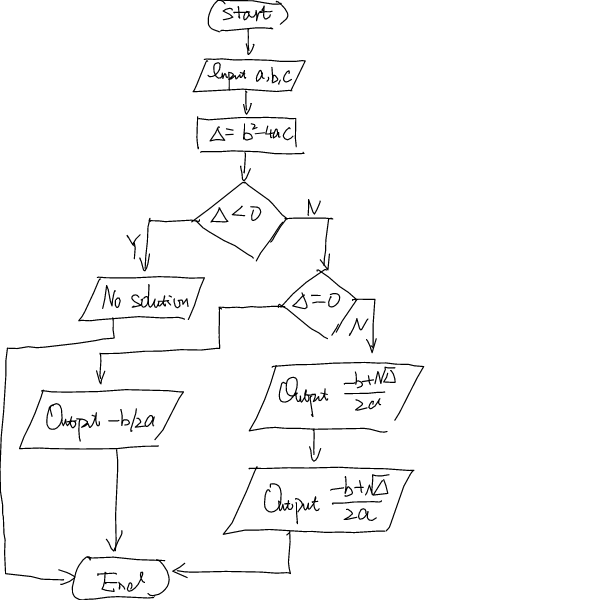 Start
Input a,b,c
Δ= b²-4ac
Δ<0
N
Y
No solution
Δ=0
N
Output -b+√Δ/2a
Output -b/2a
Output -b+√Δ/2a
End